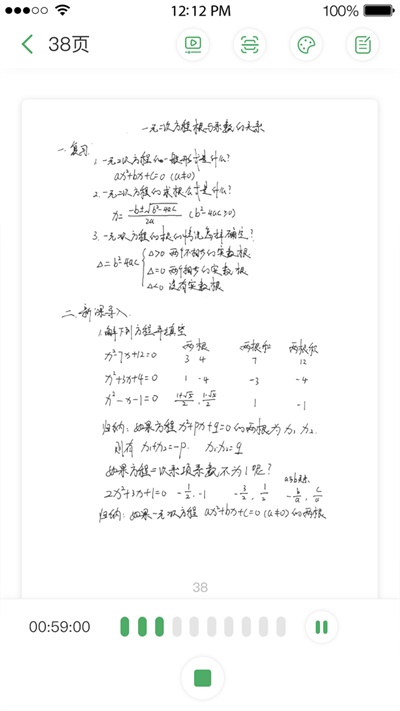 12:12 PM 100%
38页
一元二次方程根与系数的关系
一.复习
1.一元二次方程的一般形式是什么?
ax²+bx+c=0 (a≠0)
2.一元二次方程的求根公式是什么?
x=(-b±√(b²-4ac))/2a (b²-4ac≥0)
3.一元二次方程的根的情况怎样确定?
Δ=b²-4ac { Δ>0 两个不相等的实数根
Δ=0 两个相等的实数根
Δ<0 没有实数根
二.新课导入
1.解下列方程并填空
两根 两根和 两根积
x²-7x+12=0 3 4 7 12
x²+3x+4=0 1 -4 -3 -4
x²-x-1=0 (1+√5)/2, (1-√5)/2 1 -1
归纳:如果方程x²+px+q=0的两根为x₁ x₂
则有 x₁+x₂=-p. x₁x₂=q
如果方程二次项系数不为1呢?
2x²+3x+1=0 -1/2, -1 -3/2, 1/2 -b/a, c/a
归纳:如果一元二次方程 ax²+bx+c=0 (a≠0)的两根
38
00:59:00